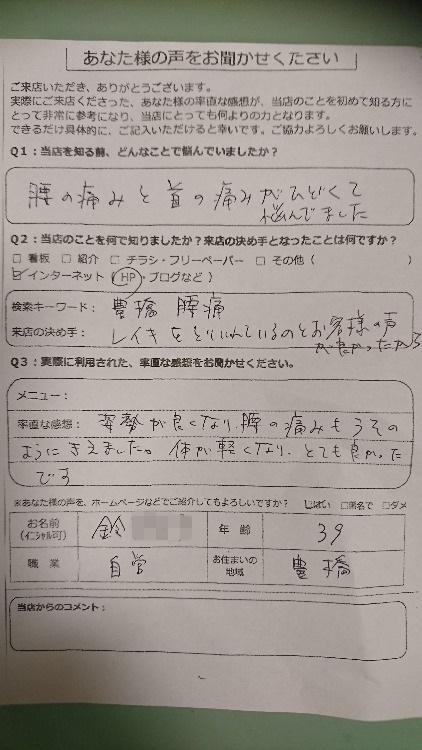 あなた様の声をお聞かせください
ご来店いただき、ありがとうございます。
実際にご来店くださった、あなた様の率直な感想が、当店のことを初めて知る方に
とって非常に参考になり、当店にとっても何よりの力となります。
できるだけ具体的に、ご記入いただけると幸いです。ご協力よろしくお願いします。
Q1：当店を知る前、どんなことで悩んでいましたか？
腰の痛みと首の痛みがひどくて
悩んでました
Q2：当店のことを何で知りましたか？来店の決め手となったことは何ですか？
□ 看板 □ 紹介 □ チラシ・フリーペーパー □ その他（
☑ インターネット（HP・ブログなど）
検索キーワード： 豊橋 腰痛
来店の決め手： レイキをとりいれているのとお客様の声
が良かったから
Q3：実際に利用された、率直な感想をお聞かせください。
メニュー：
率直な感想： 姿勢が良くなり、腰の痛みもうその
ようにきえました。体が軽くなり、とても良かった
です
※あなた様の声を、ホームページなどでご紹介してもよろしいですか？ ☑はい □匿名で □ダメ
お名前 鈴 年 齢 39
(イニシャル可)
職 業 自営 お住まいの 豊橋
地域
当店からのコメント：